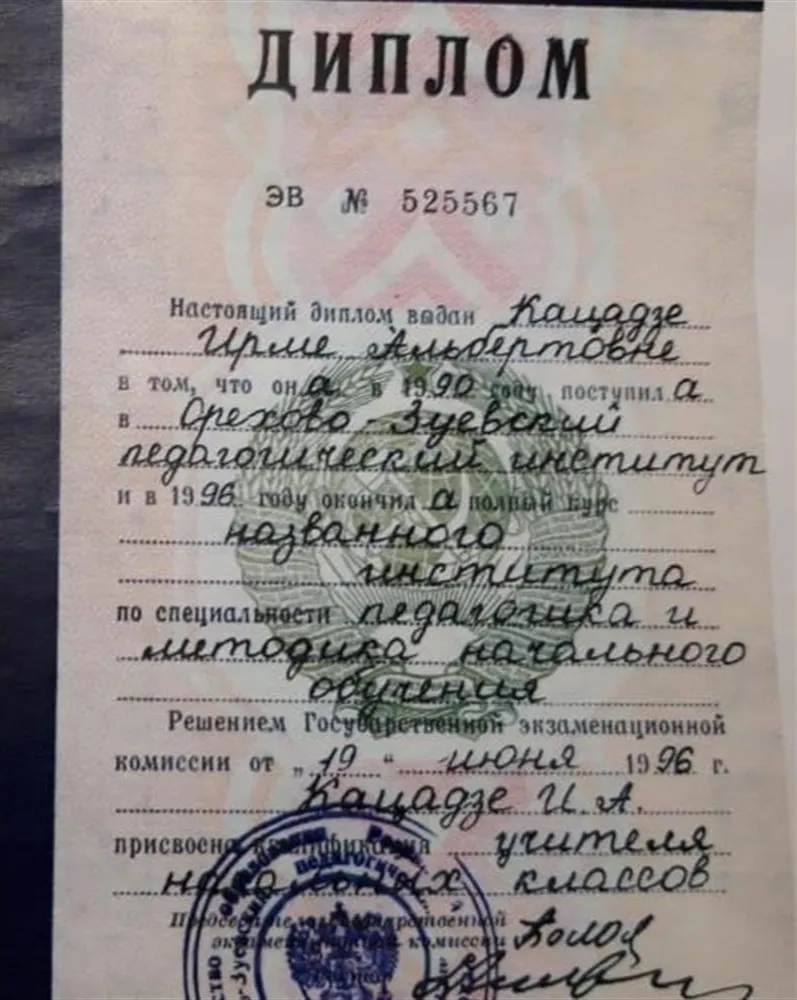 ДИПЛОМ
ЭВ № 525567
Настоящий диплом выдан Кацадзе
Ирме Альбертовне
в том, что она в 1990 году поступила
в Орехово-Зуевский
педагогический институт
и в 1996 году окончила полный курс
названного
института
по специальности педагогика и
методика начального
обучения
Решением Государственной экзаменационной
комиссии от „19“ июня 1996 г.
Кацадзе И.А.
присвоена квалификация учителя
начальных классов
Председатель Государственной
экзаменационной комиссии